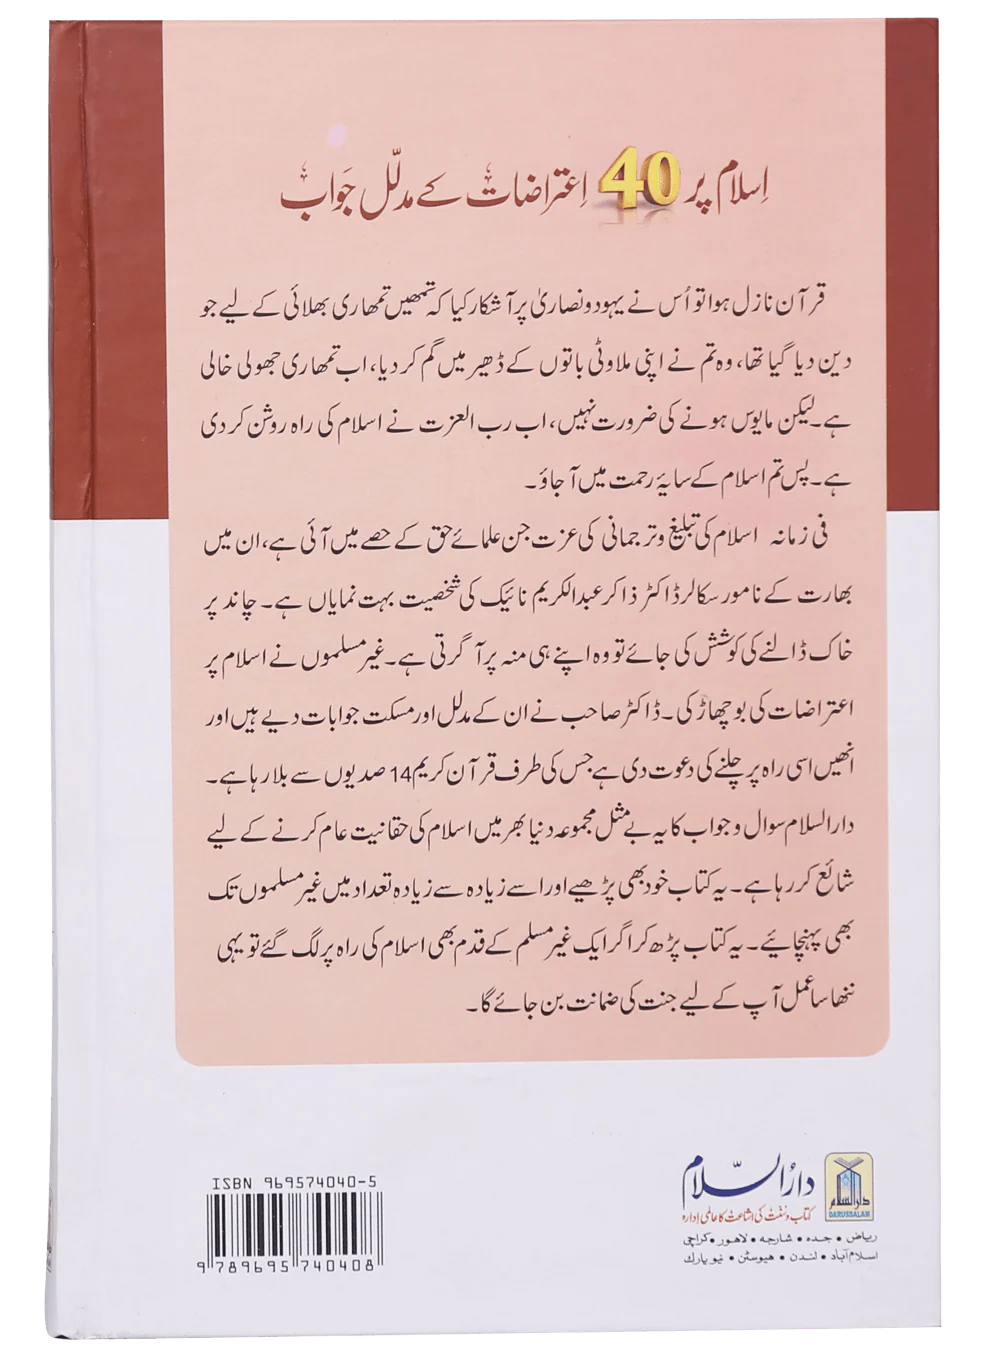 اِسلام پر 40 اِعتراضات کے مدلّل جَواب
قرآن نازل ہوا تو اُس نے یہود و نصاریٰ پر آشکار کیا کہ تمھیں تمھاری بھلائی کے لیے جو
دین دیا گیا تھا، وہ تم نے اپنی ملاوٹی باتوں کے ڈھیر میں گم کر دیا، اب تمھاری جھولی خالی
ہے۔ لیکن مایوس ہونے کی ضرورت نہیں، اب رب العزت نے اسلام کی راہ روشن کر دی
ہے۔ پس تم اسلام کے سایۂ رحمت میں آ جاؤ۔
فی زمانہ اسلام کی تبلیغ و ترجمانی کی عزت جن علمائے حق کے حصے میں آئی ہے، ان میں
بھارت کے نامور سکالر ڈاکٹر ذاکر عبدالکریم نائیک کی شخصیت بہت نمایاں ہے۔ چاند پر
خاک ڈالنے کی کوشش کی جائے تو وہ اپنے ہی منہ پر آ گرتی ہے۔ غیر مسلموں نے اسلام پر
اعتراضات کی بوچھاڑ کی۔ ڈاکٹر صاحب نے ان کے مدلل اور مسکت جوابات دیے ہیں اور
انھیں اسی راہ پر چلنے کی دعوت دی ہے جس کی طرف قرآن کریم 14 صدیوں سے بلا رہا ہے۔
دارالسلام سوال و جواب کا یہ بے مثل مجموعہ دنیا بھر میں اسلام کی حقانیت عام کرنے کے لیے
شائع کر رہا ہے۔ یہ کتاب خود بھی پڑھیے اور اسے زیادہ سے زیادہ تعداد میں غیر مسلموں تک
بھی پہنچائیے۔ یہ کتاب پڑھ کر اگر ایک غیر مسلم کے قدم بھی اسلام کی راہ پر لگ گئے تو یہی
ننھا سا عمل آپ کے لیے جنت کی ضمانت بن جائے گا۔
دارُالسّلام
کتاب و سنّت کی اشاعت کا عالمی اِدارہ
ریاض • جدہ • شارجہ • لاہور • کراچی
اسلام آباد • لندن • ہیوسٹن • نیو یارک
دارالسلام
DARUSSALAM
ISBN 969574040-5
9 789695 740408